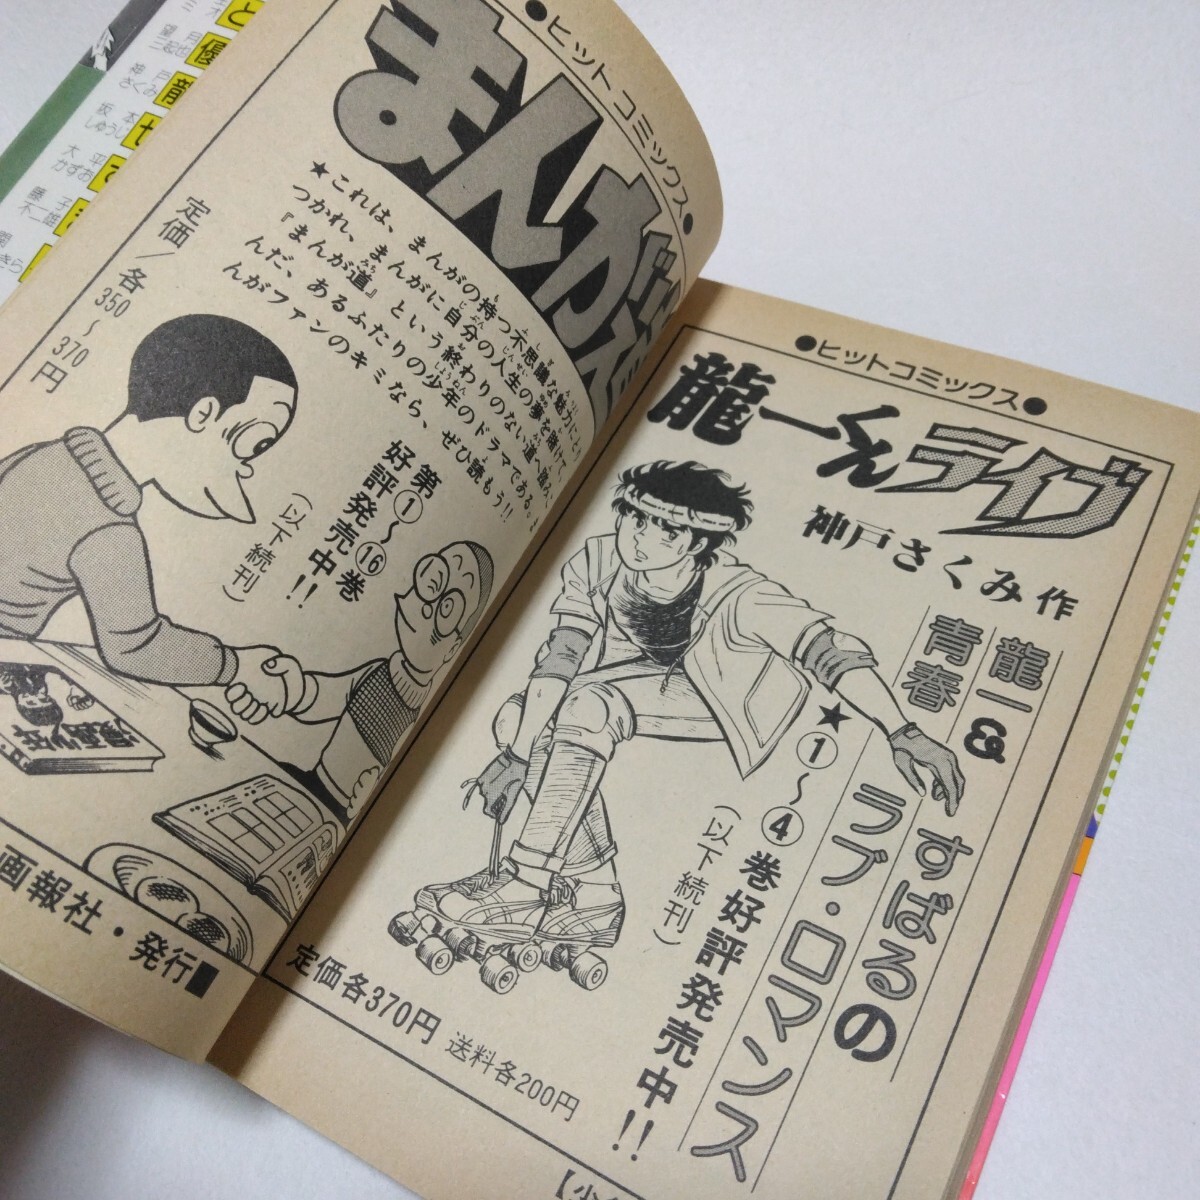 ●ヒットコミックス●
まんが道
★これは、まんがの持つ不思議な魅力にと
つかれ、まんがに自分の人生の夢を賭けて
『まんが道』という終わりのない道へ踏み
んだ、あるふたりの少年のドラマである。
んがファンのキミなら、ぜひ読もう!!
第①〜⑯巻
好評発売中!!
(以下続刊)
定価/各350〜370円
画報社・発行
●ヒットコミックス●
龍一くんライブ
神戸さくみ作
龍一&すばるの
青春ラブ・ロマンス
★①〜④巻好評発売中!!
(以下続刊)
定価各370円 送料各200円
望月
三起也
神戸
さくみ
坂本
しゅうじ
大平
かずお
藤子
不二雄
と
優
龍